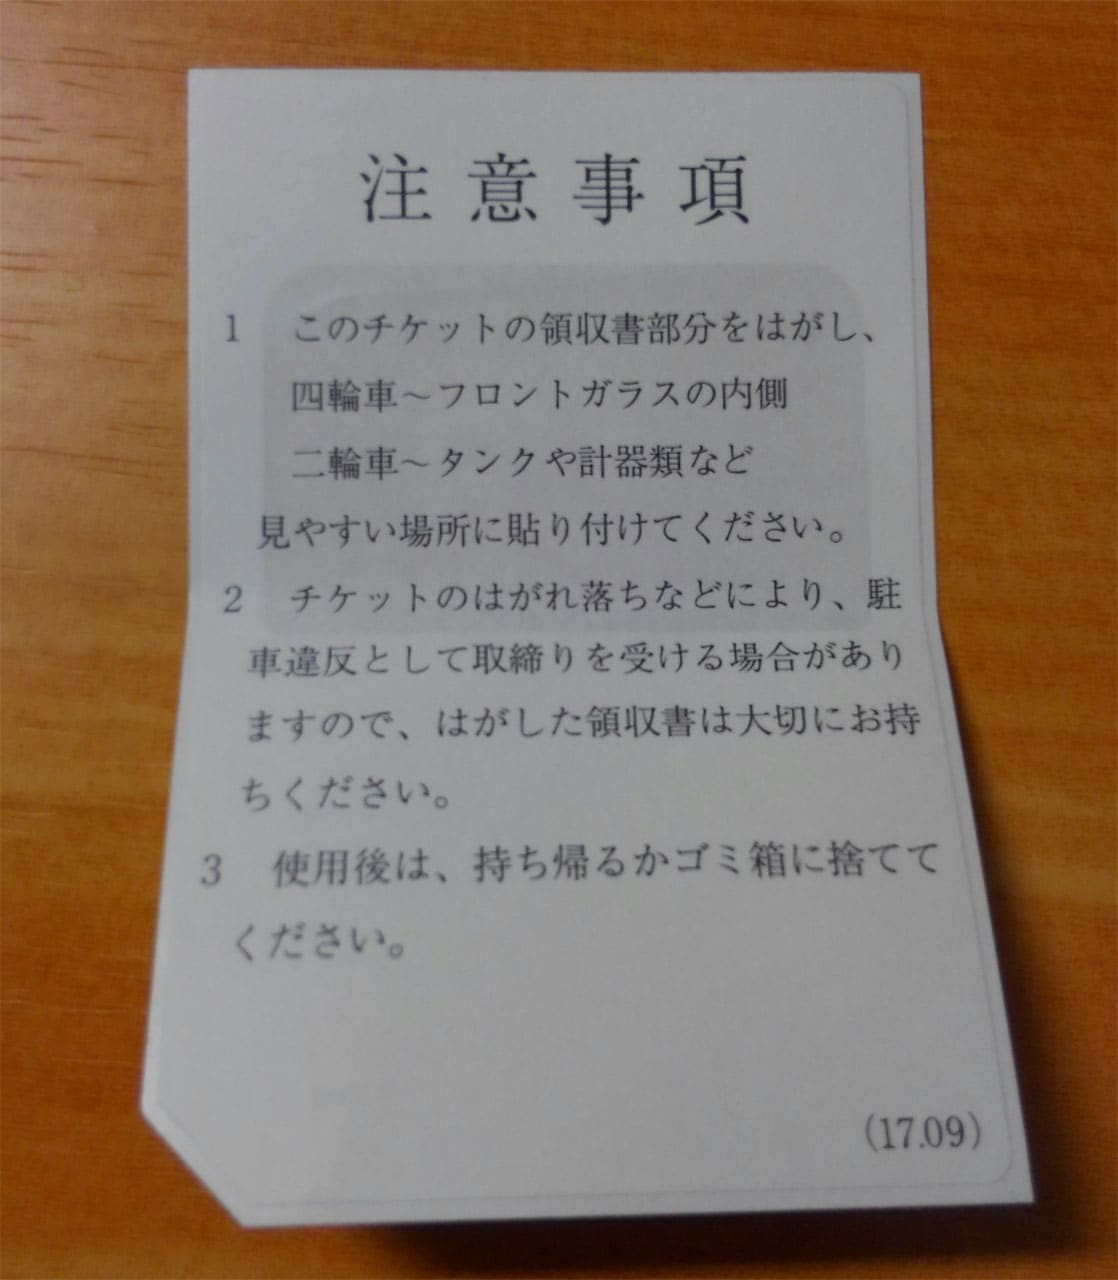 注意事項
1 このチケットの領収書部分をはがし、
四輪車～フロントガラスの内側
二輪車～タンクや計器類など
見やすい場所に貼り付けてください。
2 チケットのはがれ落ちなどにより、駐
車違反として取締りを受ける場合があり
ますので、はがした領収書は大切にお持
ちください。
3 使用後は、持ち帰るかゴミ箱に捨てて
ください。
(17.09)